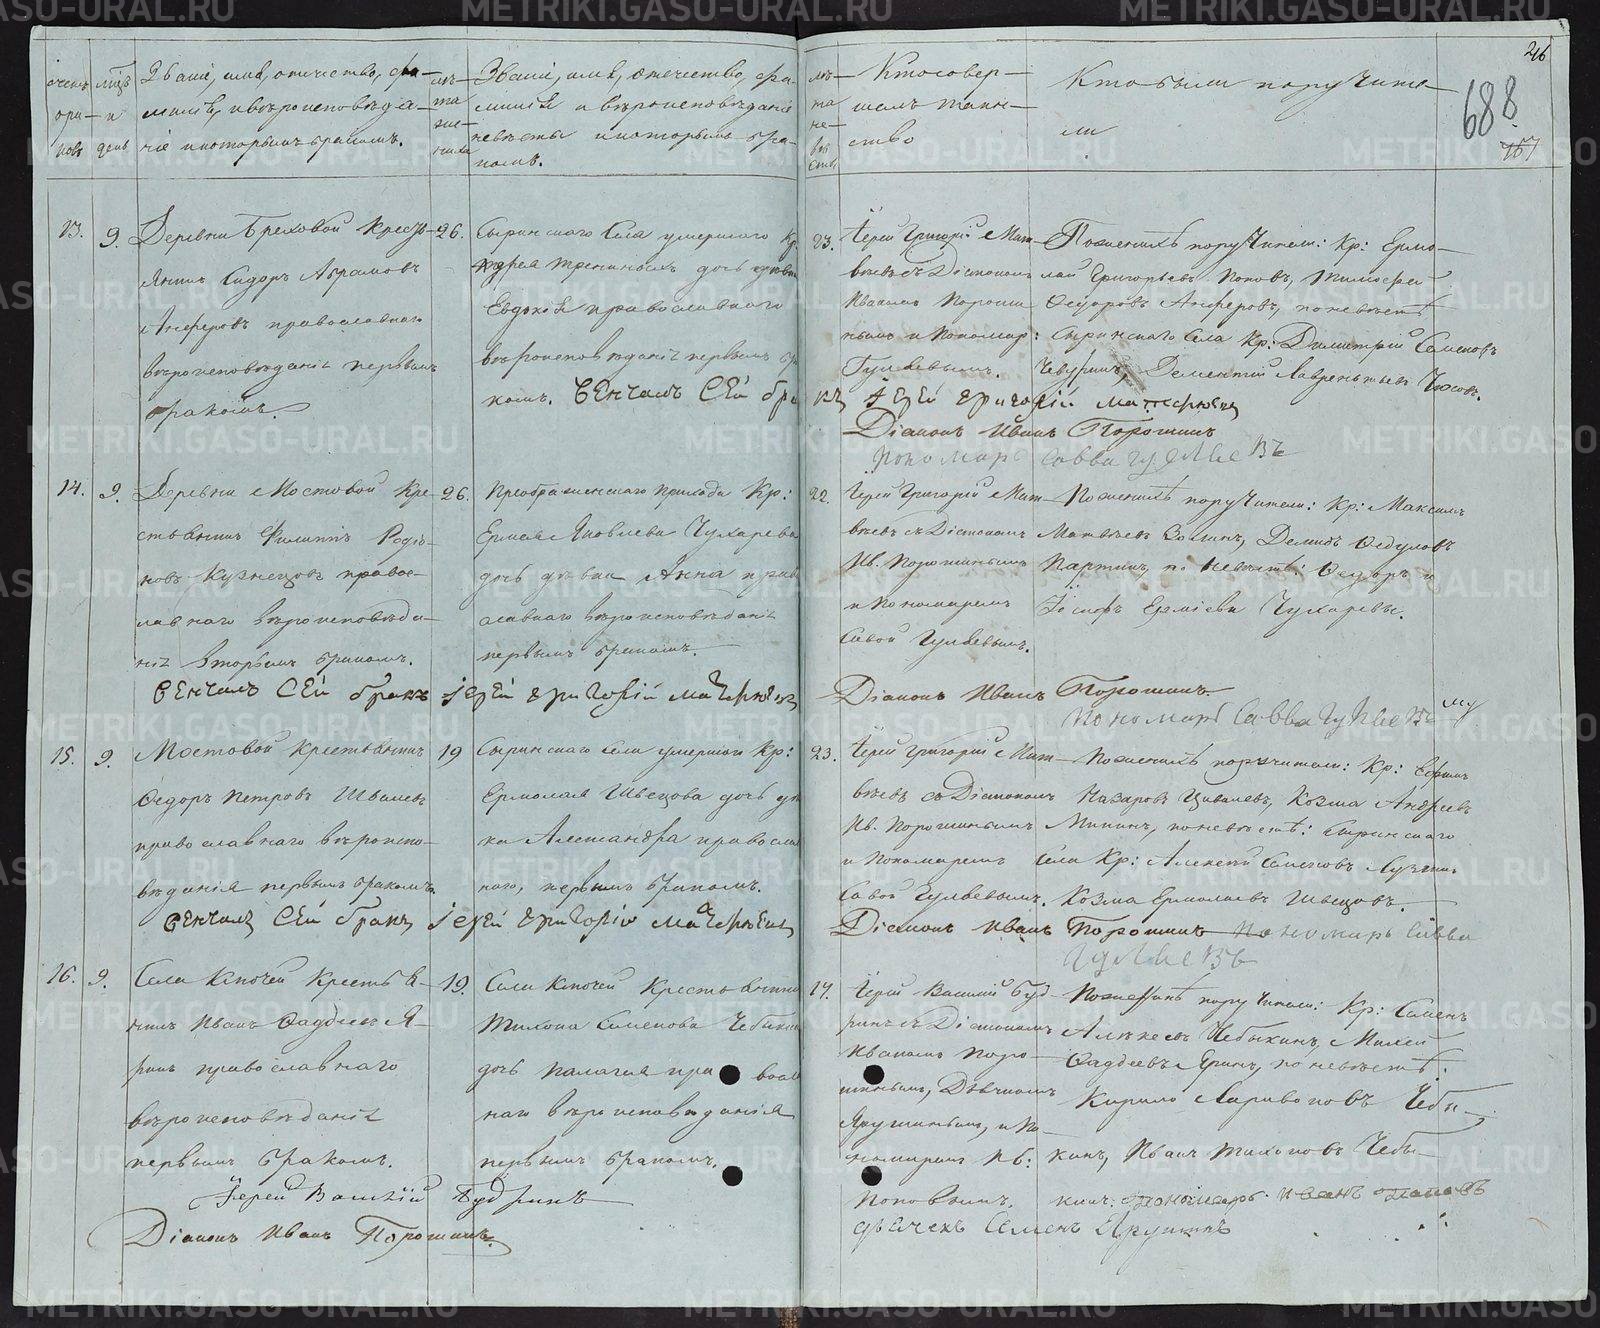 счетъ
мцъ
Званіе, имя, отчество, фа-
лѣ-
Званіе, имя, отечество, фа-
лѣ-
Кто совер-
Кто были поручите-
26
бра-
и
милія, и вѣроисповѣда-
та
милія и вѣроисповѣданіе
та
шалъ таин-
ли
688
ковъ
день
ніе и которымъ бракомъ.
же-
ниха
невѣсты и которымъ бра-
комъ.
не-
вѣ
сты
ство
157
13.
9.
Деревни Бреховой Кресть-
янинъ Сидоръ Абрамовъ
Анферовъ православнаго
вѣроисповѣданія первымъ
бракомъ.
26.
Сыринскаго Села умершаго Кр:
дочь дѣвка
Евдокія православнаго
вѣроисповѣданія первымъ бра
комъ.
23.
Іерей Григорій Мат-
вѣевъ съ Діакономъ
Иваномъ Пороши
нымъ и Пономар:
Гуляевымъ.
По женихѣ поручители: Кр: Ермо-
лай Григорьевъ Поповъ, Тимофей
Ѳедоровъ Анферовъ, по невѣстѣ
Сыринскаго Села Кр: Димитрій Семеновъ
Дементій Лаврентьевъ
венчалъ сей бракъ іерей григорій
Діаконъ Иванъ Порошинъ
пономарь Савва гуляевъ
14.
9.
Деревни Мостовой Кре
стьянинъ Филиппъ Родіо-
новъ Кузнецовъ право-
славнаго вѣроисповѣда-
нія вторымъ бракомъ.
26.
Преображенскаго прихода Кр:
Ермея Яковлева Чухарева
дочь дѣвка Анна прав
ославнаго вѣроисповѣданія
первымъ бракомъ.
22.
Іерей Григорій Мат-
вѣевъ съ Діакономъ
Ив. Порошинымъ
и Пономаремъ
Савой Гуляевымъ.
По женихѣ поручители: Кр: Максимъ
Матвѣевъ Демидъ Ѳедуловъ
по невѣстѣ: Ѳедоръ и
Іосифъ Ермеевы Чухаревы.
венчалъ сей бракъ іерей григорій
Діаконъ Иванъ Порошинъ
пономарь Савва гуляевъ
15.
9.
Мостовой Крестьянинъ
Ѳедоръ Петровъ
православнаго вѣроиспо-
вѣданія первымъ бракомъ
19
Сыринскаго Села умершаго Кр:
Ермолая Швецова дочь дѣв
ка Александра правосла
внаго, первымъ бракомъ.
23.
Іерей Григорій Мат-
вѣевъ съ Діакономъ
Ив. Порошинымъ
и Пономаремъ
Савой Гуляевымъ.
По женихѣ поручители: Кр: Ефимъ
Назаровъ Козма Андреевъ
по невѣстѣ: Сыринскаго
Села Кр: Алексей Семеновъ
Козма Ермолаевъ Швецовъ.
венчалъ сей бракъ іерей григорій
Діаконъ Иванъ Порошинъ пономарь Савва
гуляевъ
16.
9.
Села Ключей Крестья-
нинъ Иванъ Ѳаддѣевъ Я-
ринъ православнаго
вѣроисповѣданія
первымъ бракомъ.
19.
Села Ключей Крестьянина
Тихона Семенова Чебыкина
дочь Палагія пра вослав
наго вѣроисповѣданія
первымъ бракомъ.
17.
Іерей Василій Буд-
ринъ съ Діакономъ
Иваномъ Поро-
шинымъ, Дьячкомъ
Ярушинымъ, и По-
номаремъ Ив:
Поповымъ.
По женихѣ поручители: Кр: Семенъ
Алексеевъ Чебыкинъ, Михей
Ѳаддѣевъ Яринъ, по невѣстѣ:
Кирило Ларионовъ Чебы-
кинъ, Иванъ Тихоновъ Чебы-
кинъ. Пономарь Иванъ Поповъ
Іерей Василій Будринъ
дьячекъ Семенъ Ярушинъ
Діаконъ Иванъ Порошинъ.
METRIKI.GASO-URAL.RU